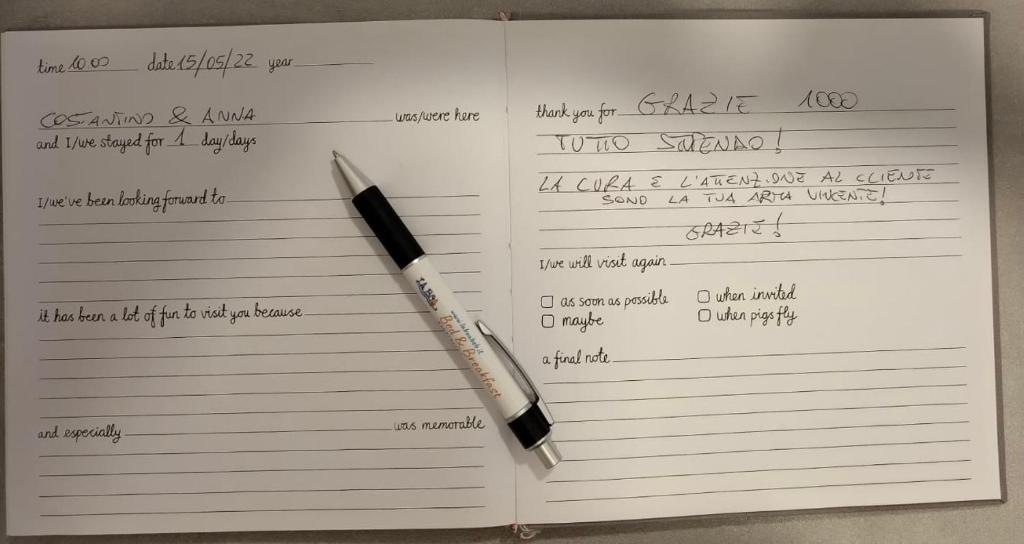 time 10:00 date 15/05/22 year
COSTANTINO & ANNA was/were here
and I/we stayed for 1 day/days
I/we've been looking forward to
it has been a lot of fun to visit you because
and especially was memorable
Bed & Breakfast
thank you for GRAZIE 1000
TUTTO STUPENDO!
LA CURA E L'ATTENZIONE AL CLIENTE
SONO LA TUA ARMA VINCENTE!
GRAZIE!
I/we will visit again
as soon as possible when invited
maybe when pigs fly
a final note